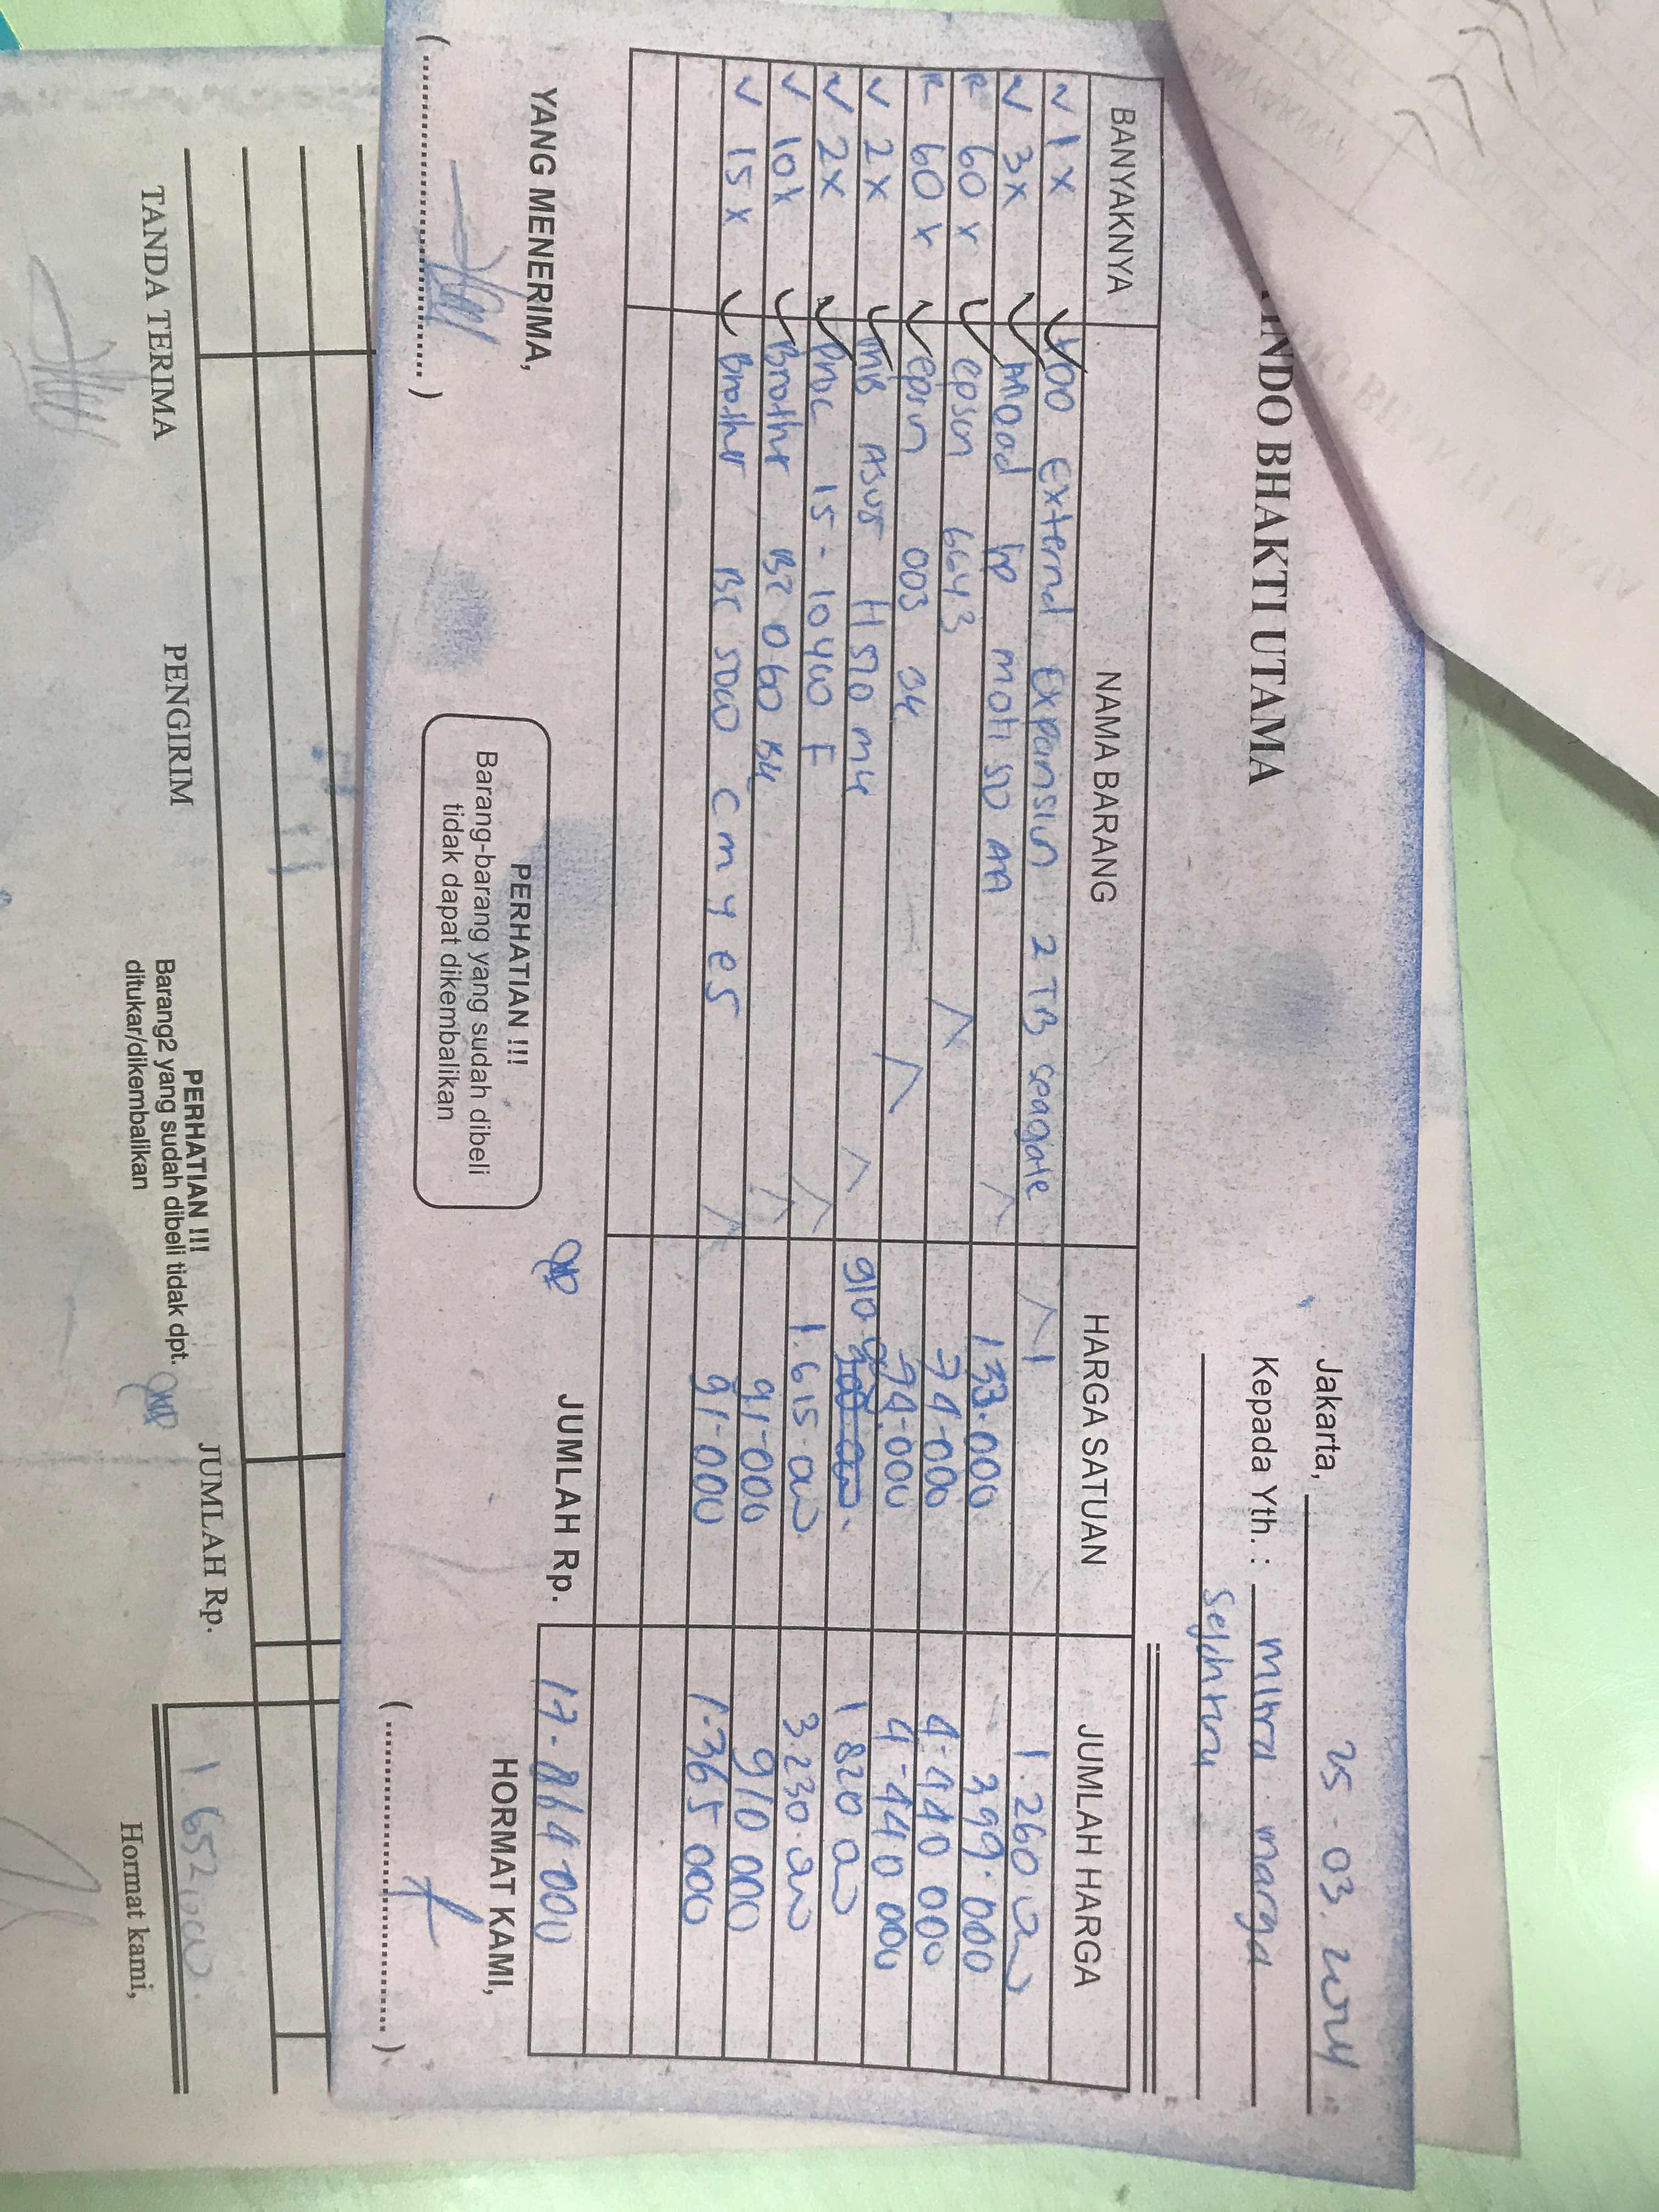 INDO BHAKTI UTAMA
Jakarta, 25-03.2024
Kepada Yth. : mitra marga
Sejahtera
BANYAKNYA NAMA BARANG HARGA SATUAN JUMLAH HARGA
1x External Expansion 2 TB Seagate 1.260.000
3x hp 133.000 399.000
R 60x epson 6643 74.000 4.440 000
R 60x epson 003 74.000 4.440 000
2x MB ASUS H510 M4 910 1 820 000
2x Proc i5-10400 F 1.615.000 3.230.000
10x Brother BT D60 B4 91.000 910 000
15x Brother BT 5000 C m y es 91.000 1.365 000
JUMLAH Rp. 17.864.000
YANG MENERIMA,
PERHATIAN !!!
Barang-barang yang sudah dibeli
tidak dapat dikembalikan
HORMAT KAMI,
(........................)
(........................)
TANDA TERIMA
PENGIRIM
PERHATIAN !!!
Barang2 yang sudah dibeli tidak dpt.
ditukar/dikembalikan
JUMLAH Rp. 1.652.000
Hormat kami,